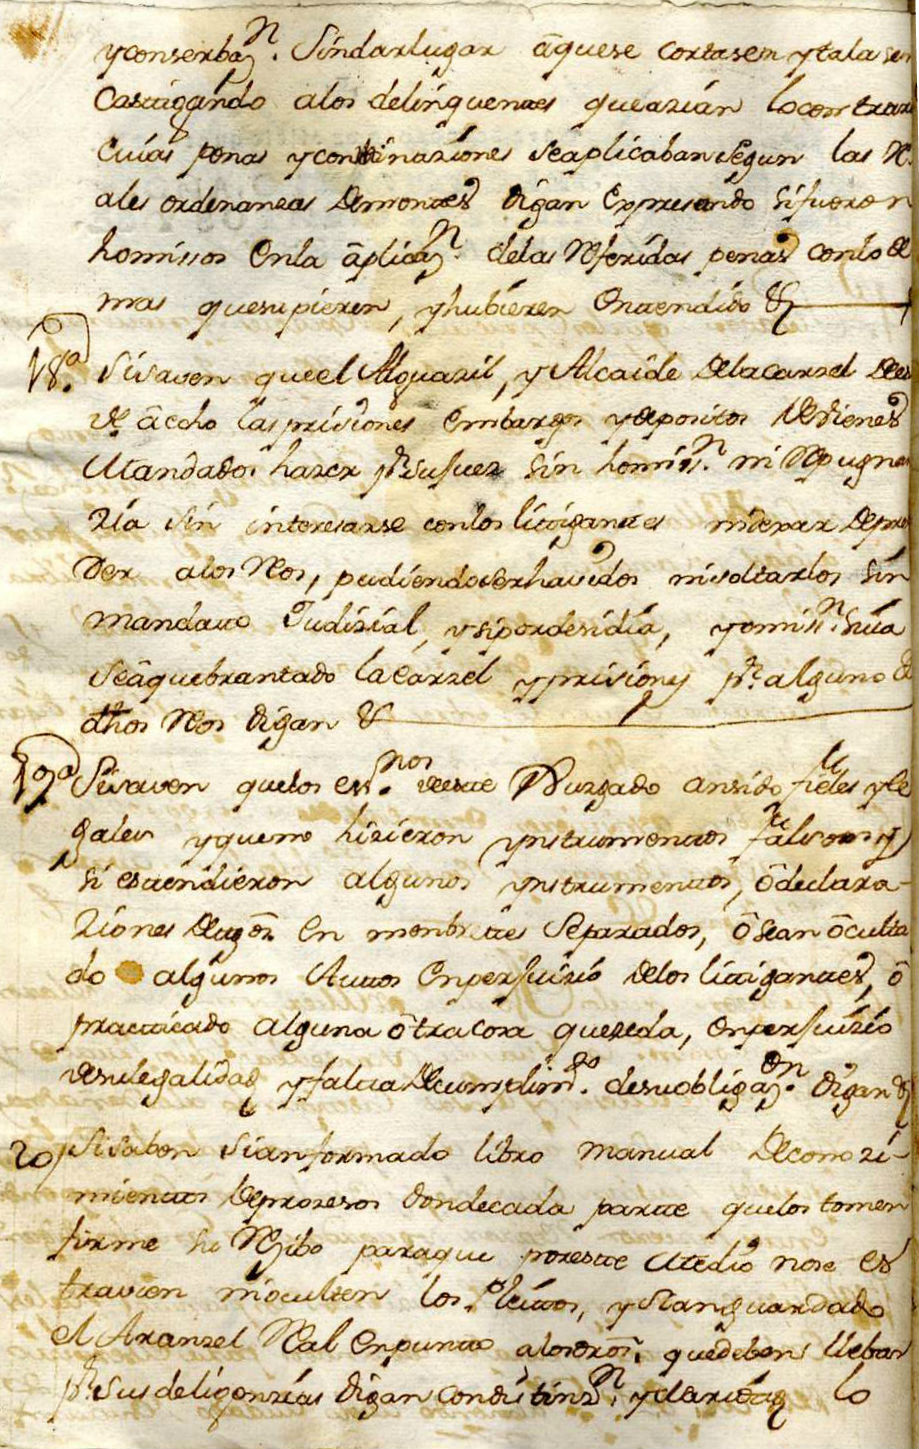 yconserbaz.n Sindarlugar âquese cortasen ytalasen
Castigando alos delinquentes queazian locontrar
Cuias penas ycontinaziones seaplicaban Segun las Re
ales ordenanzas Demontes digan Expresando si fueron
homissos Enla âplicaz.n delas Referidas penas conlo de
mas quesupieren, yhubieren Entendido &
18.a Sisaven queel Alguazil, y Alcaide Delacarzel
âcho las prisiones Embargos ydepositos Debienes
Mandados hazer p.r suJuez sin homiss.n ni Repugnan
zia sin interesarse conlos litigantes nidexar Depren
Der alos Reos, pudiendoserhavidos nisoltarlos sin
mandato Judizial, ysipordesidia, yomiss.n suia
seâquebrantado lacarzel yprisiones p.r alguno de
dhos Reos digan &
19.a Sisaven quelos ess.nos deeste Juzgado ansido fieles yle
gales yqueno hizieron ynstrumentos falsos y
si estendieron algunos ynstrumentos, ôdeclara-
ziones En membretes Separados, ôsean ôculta
do algunos Autos Enperjuizio delos litigantes, ô
practicado alguna ôtracosa quezeda, Enperjuizio
desulegalidad yfalta Decumplim.to desuobligaz.on digan &
20 Sisaben sianformado libro manual Deconozi-
mientos Deprozesos dondecada parte quelos tomen
firme su Rezibo paraque poreste Medio nose es
travien nioculten los Pleitos, ysianguardado
el Aranzel Real Enpunto alosdros. quedeben lleban
p.r susdeligenzias digan condistinz.n yclaridad lo